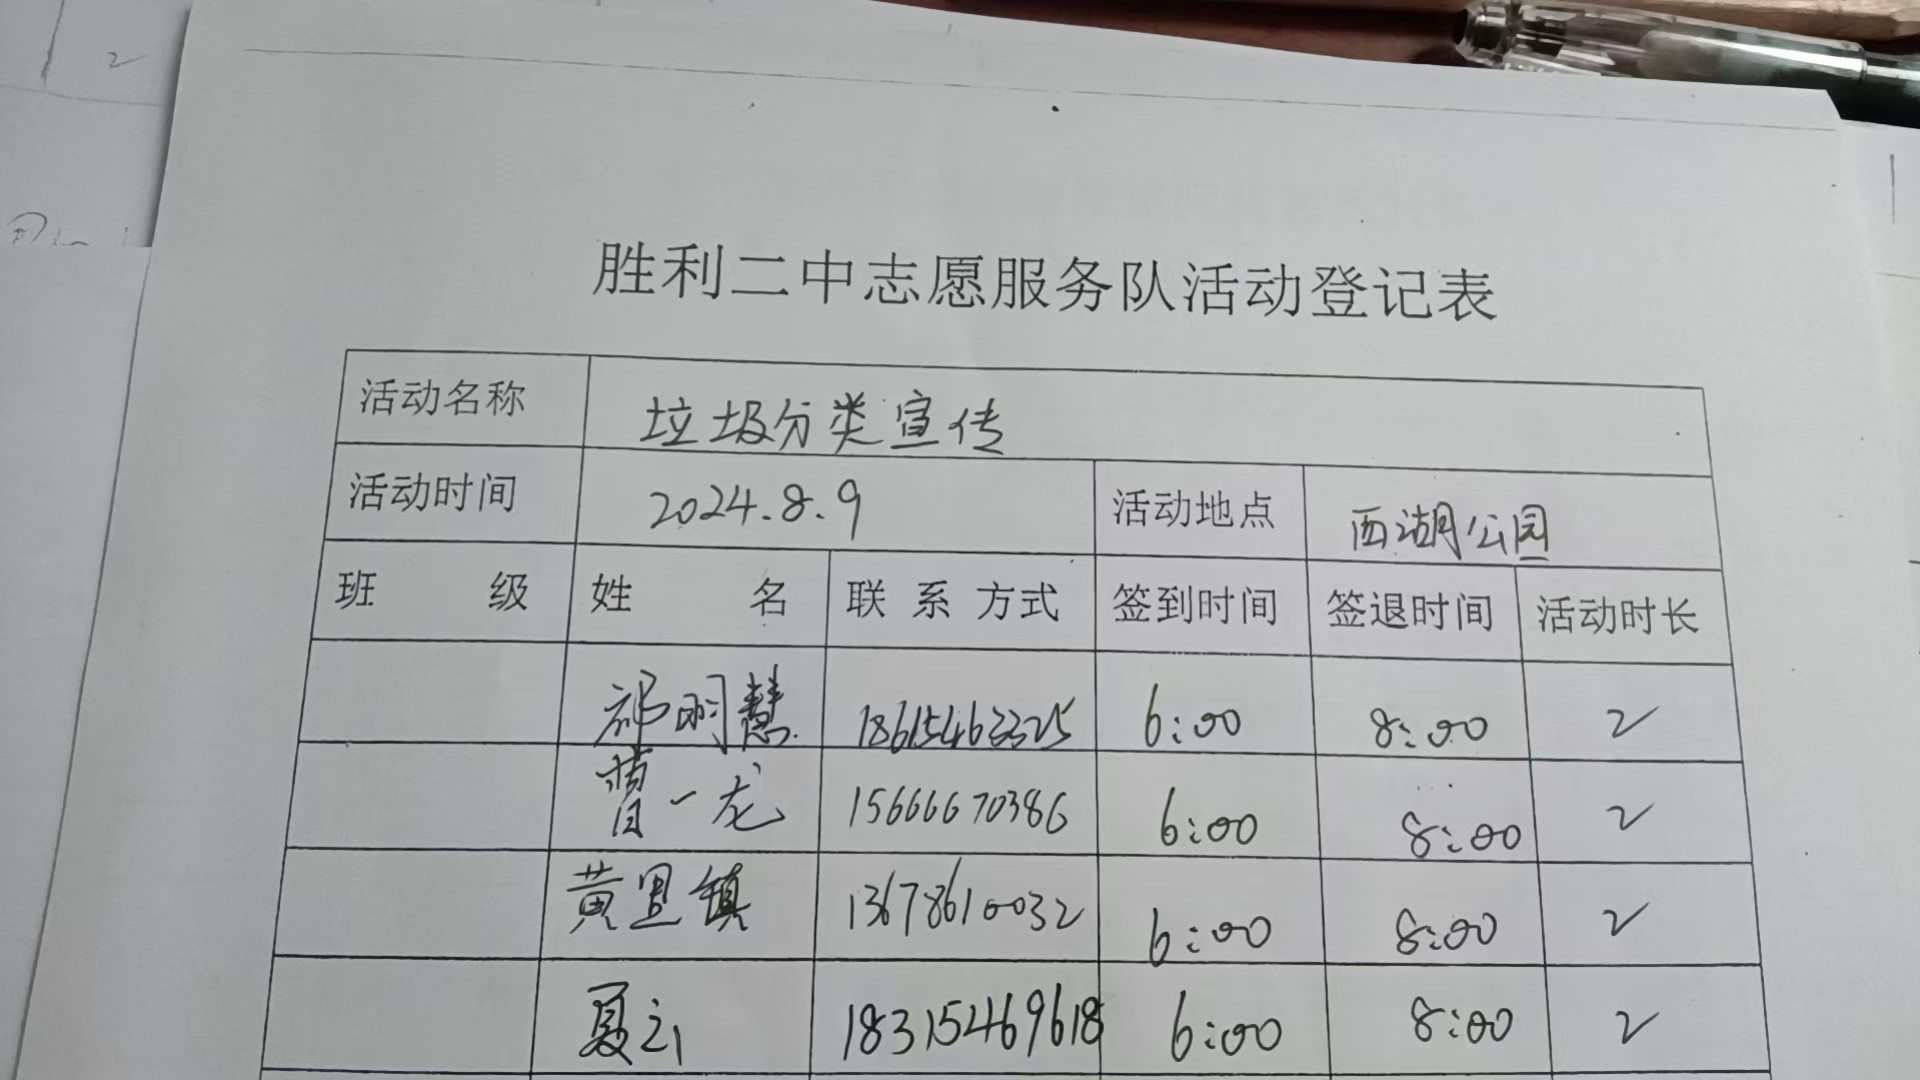 胜利二中志愿服务队活动登记表
活动名称 垃圾分类宣传
活动时间 2024.8.9 活动地点 西湖公园
班 级 姓 名 联系方式 签到时间 签退时间 活动时长
祁明慧 18615463325 6:00 8:00 2
曹一龙 15666670386 6:00 8:00 2
黄置镇 13678610032 6:00 8:00 2
夏云 18315469618 6:00 8:00 2